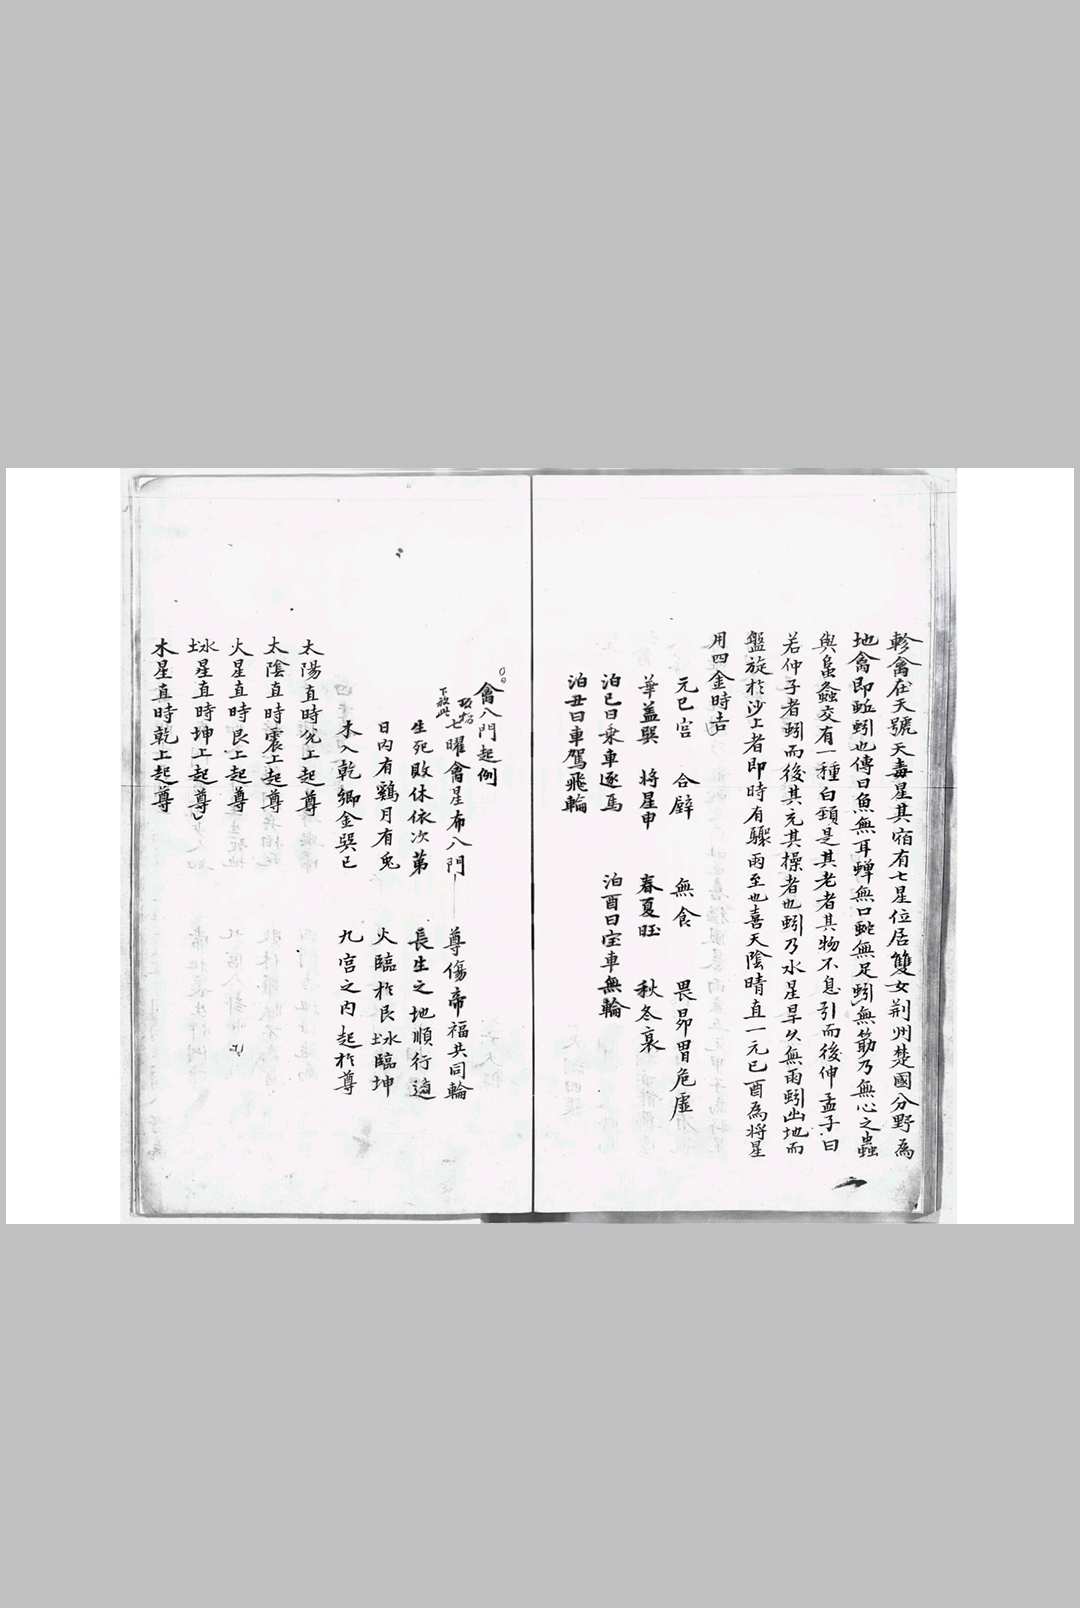 軫禽在天號天毒星其宿有七星位居雙女荆州楚國分野為
地禽即蚯蚓也傳曰魚無耳蟬無口虵無足蚓無筋乃無心之蟲
與䖝螽交有一種白頸是其老者其物不息引而後伸孟子曰
若仲子者蚓而後其充其操者也蚓乃水星旱久無雨蚓出地而
盤旋於沙上者即時有驟雨至也喜天陰晴直一元巳酉為將星
用四金時吉
元巳宮 合壁 無食 畏昴胃危虛
華盖巽 將星申 春夏旺 秋冬衰
泊巳日乘車逐馬 泊酉日宝車無輪
泊丑日車駕飛輪
禽八門起例
七曜會星布八門 尊傷帝福共同輪
生死敗休依次第 長生之地順行遁
日内有鷄月有兎 火臨於艮土水臨坤
木入乾鄉金巽巳 九宫之内起於尊
太陽直時兊上起尊
太陰直時震上起尊
火星直時艮上起尊
土水星直時坤上起尊
木星直時乾上起尊